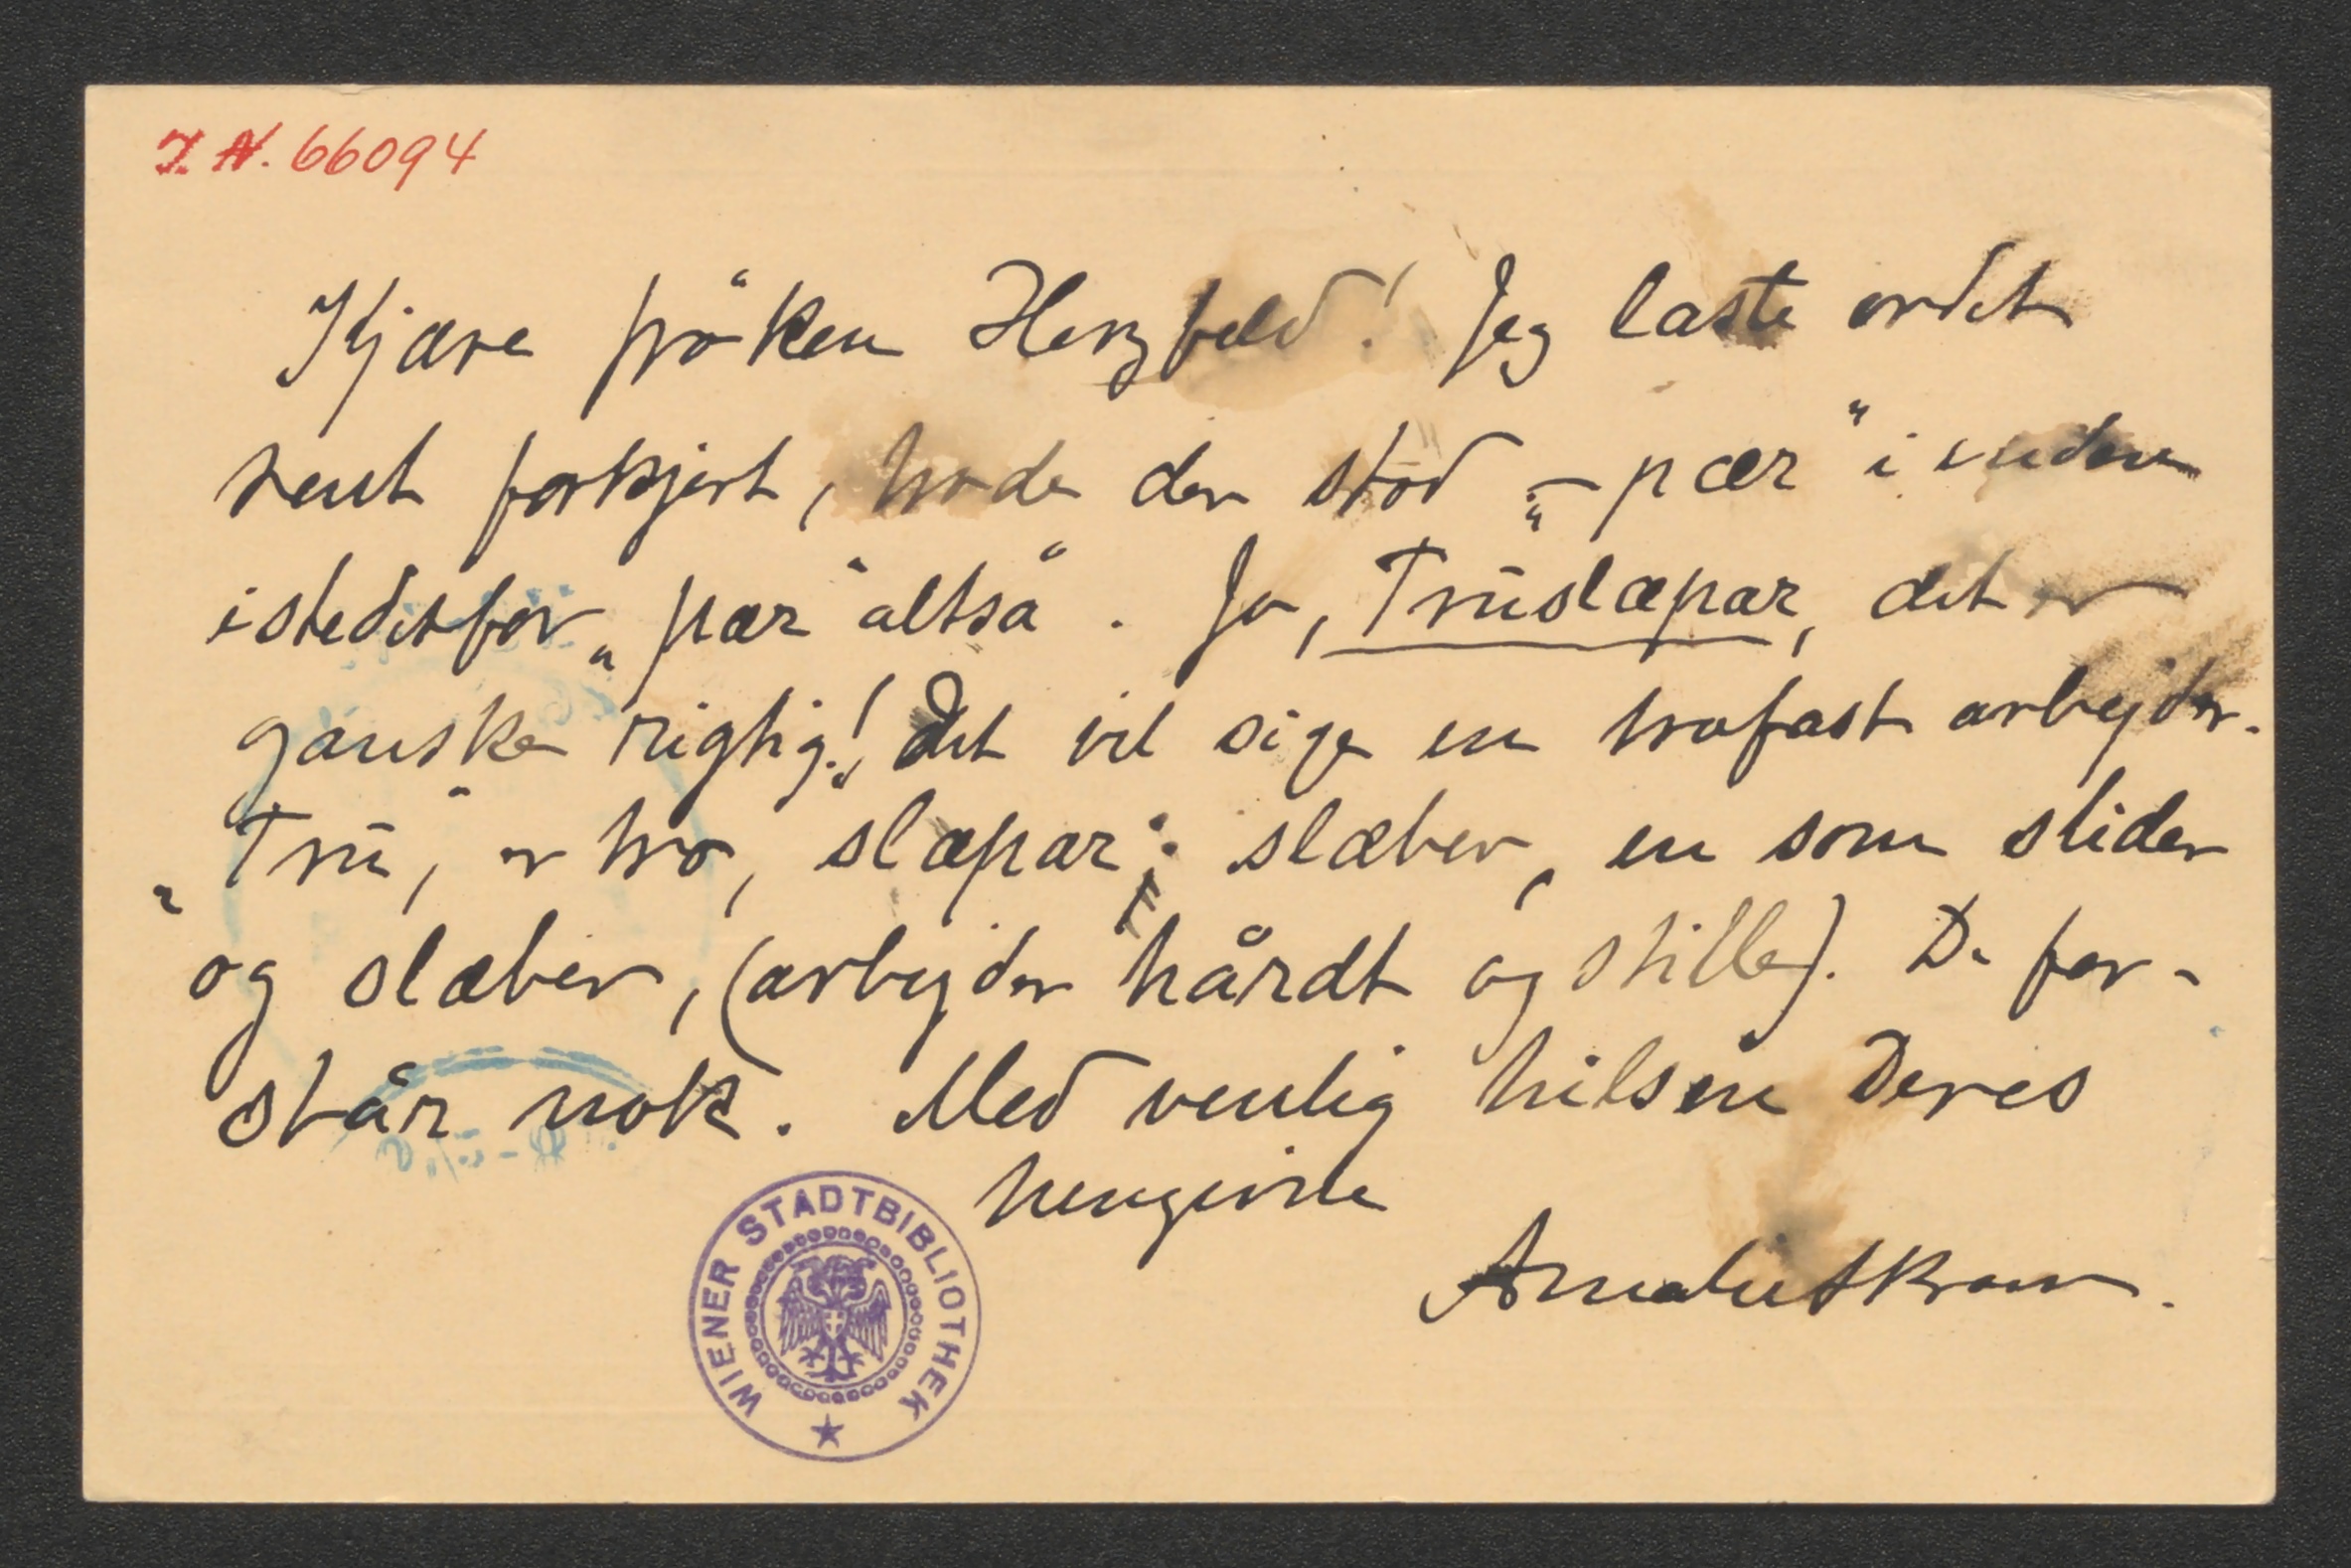 I. N. 66094
Kjære fröken Herzfeld! Jeg læste ordet
rent forkjert, trode der stod „-pær" i enden
istedetfor „par" altså. Ja, Trūslæpar, det er
ganske rigtig! Det vil sige en trofast arbejder.
„Trū", er tro, slæpar: slæber, en som slider
og slæber, (arbejder hårdt og stille). De for-
står nok. Med venlig hilsen Deres
hengivne
Amalie Skram.
WIENER STADTBIBLIOTHEK